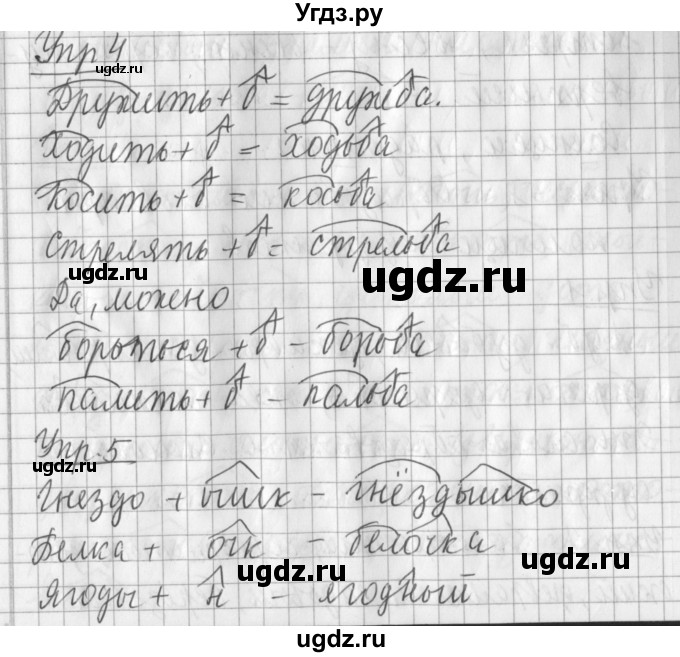 Угдз.ру
Упр 4
ugdz.ru
Дружить + б = дружба.
Ходить + б = ходьба
Косить + б = косьба
Стрелять + б = стрельба
ugdz.ru
Да, можно
бороться + б - борьба
палить + б - пальба
Упр. 5
ugdz.ru
Гнездо + ышк - гнёздышко
Белка + очк - белочка
ugdz.ru
ugdz.ru
ягоды + н - ягодный
ugdz.ru